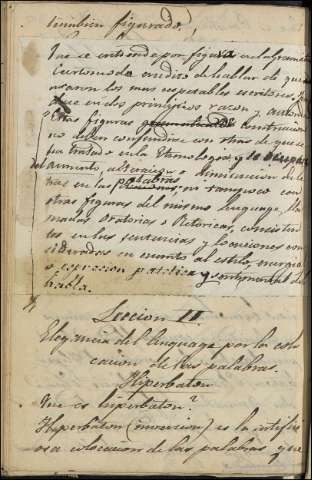 tambien figurado.
Que se entiende por figura en la grama
Cierto modo ó medio de hablar de que
usaron los mas respetables escritores, y
que en los primitivos razon y autori
Estas figuras construccion
no deben confundirse con otras de que se
ha tratado en la Etimologia y
del aumento, alteracion o diminucion
tras en las palabras, ni tampoco con
otras figuras del mismo lenguage, lla
madas Oratorias o Retoricas, consisten
tes en las sentencias y locuciones con
sideradas en cuanto al estilo, energia
o espresion patetica y sentimental del
habla.
Leccion II.
Elegancia del lenguage por la colo
cacion de las palabras.
Hiperbaton
Que es hiperbaton?
Hiperbaton (inversion) es la artificio
osa colocacion de las palabras, que